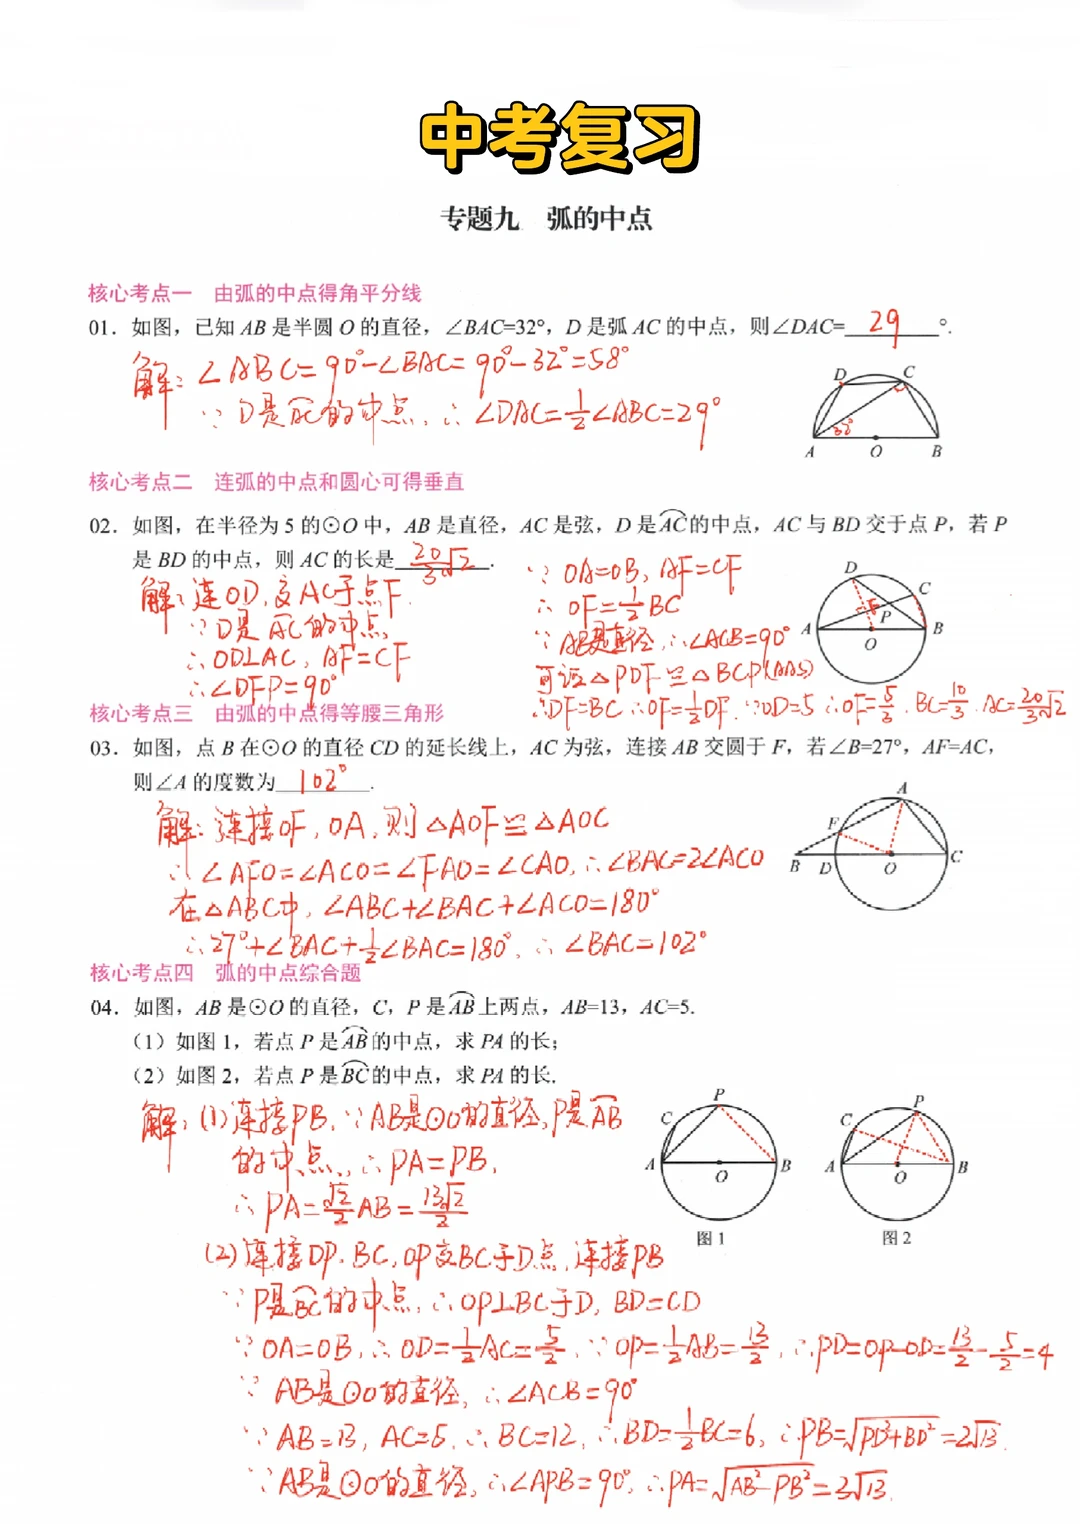 中考复习
专题九 弧的中点
核心考点一 由弧的中点得角平分线
01．如图，已知 AB 是半圆 O 的直径，∠BAC=32°，D 是弧 AC 的中点，则∠DAC=29°.
解：∠ABC=90°-∠BAC=90°-32°=58°
∵D是AC的中点，∴∠DAC=½∠ABC=29°
D C
32°
A O B
核心考点二 连弧的中点和圆心可得垂直
02．如图，在半径为 5 的⊙O 中，AB 是直径，AC 是弦，D 是AC的中点，AC 与 BD 交于点 P，若 P
是 BD 的中点，则 AC 的长是 20/3√2 .
解：连OD，交AC于点F.
∵D是AC的中点
∴OD⊥AC，AF=CF
∴∠DFP=90°
∵OA=OB，AF=CF
∴OF=½BC
∵AB是直径，∴∠ACB=90°
可证△PDF≌△BCP(AAS)
∴DF=BC∴OF=½DF.∵OD=5∴OF=5/3，BC=10/3，AC=20/3√2
D C
F P
A B
O
核心考点三 由弧的中点得等腰三角形
03．如图，点 B 在⊙O 的直径 CD 的延长线上，AC 为弦，连接 AB 交圆于 F，若∠B=27°，AF=AC，
则∠A 的度数为 102° .
解：连接OF，OA，则△AOF≌△AOC
∴∠AFO=∠ACO=∠FAO=∠CAO，∴∠BAC=2∠ACO
在△ABC中，∠ABC+∠BAC+∠ACO=180°
∴27°+∠BAC+½∠BAC=180°，∴∠BAC=102°
A
F
B D O C
核心考点四 弧的中点综合题
04．如图，AB 是⊙O 的直径，C，P 是AB上两点，AB=13，AC=5.
（1）如图 1，若点 P 是AB的中点，求 PA 的长；
（2）如图 2，若点 P 是BC的中点，求 PA 的长.
解：(1)连接PB，∵AB是⊙O的直径，P是AB
的中点，∴PA=PB，
∴PA=√2/2AB=13√2/2
P
C
A O B
图 1
P
C
A O B
图 2
(2)连接OP，BC，OP交BC于D点，连接PB
∵P是BC的中点，∴OP⊥BC于D，BD=CD
∵OA=OB，∴OD=½AC=5/2，∵OP=½AB=13/2，∴PD=OP-OD=13/2-5/2=4
∵AB是⊙O的直径，∴∠ACB=90°
∵AB=13，AC=5，∴BC=12，∴BD=½BC=6，∴PB=√PD²+BD²=2√13.
∵AB是⊙O的直径，∴∠APB=90°，∴PA=√AB²-PB²=3√13.